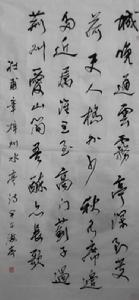 城晚通雲霧亭深到芰
荷吏人橋外少秋水席邊
多近屬淮王至高門薊子過
荊州愛山簡吾醉亦長歌
杜甫章梓州水亭詩